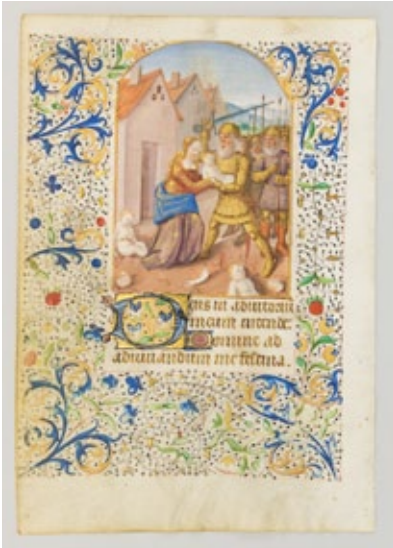 Deus in adiutoriu
meum intende.
Domine ad
adiuuandum me festina.